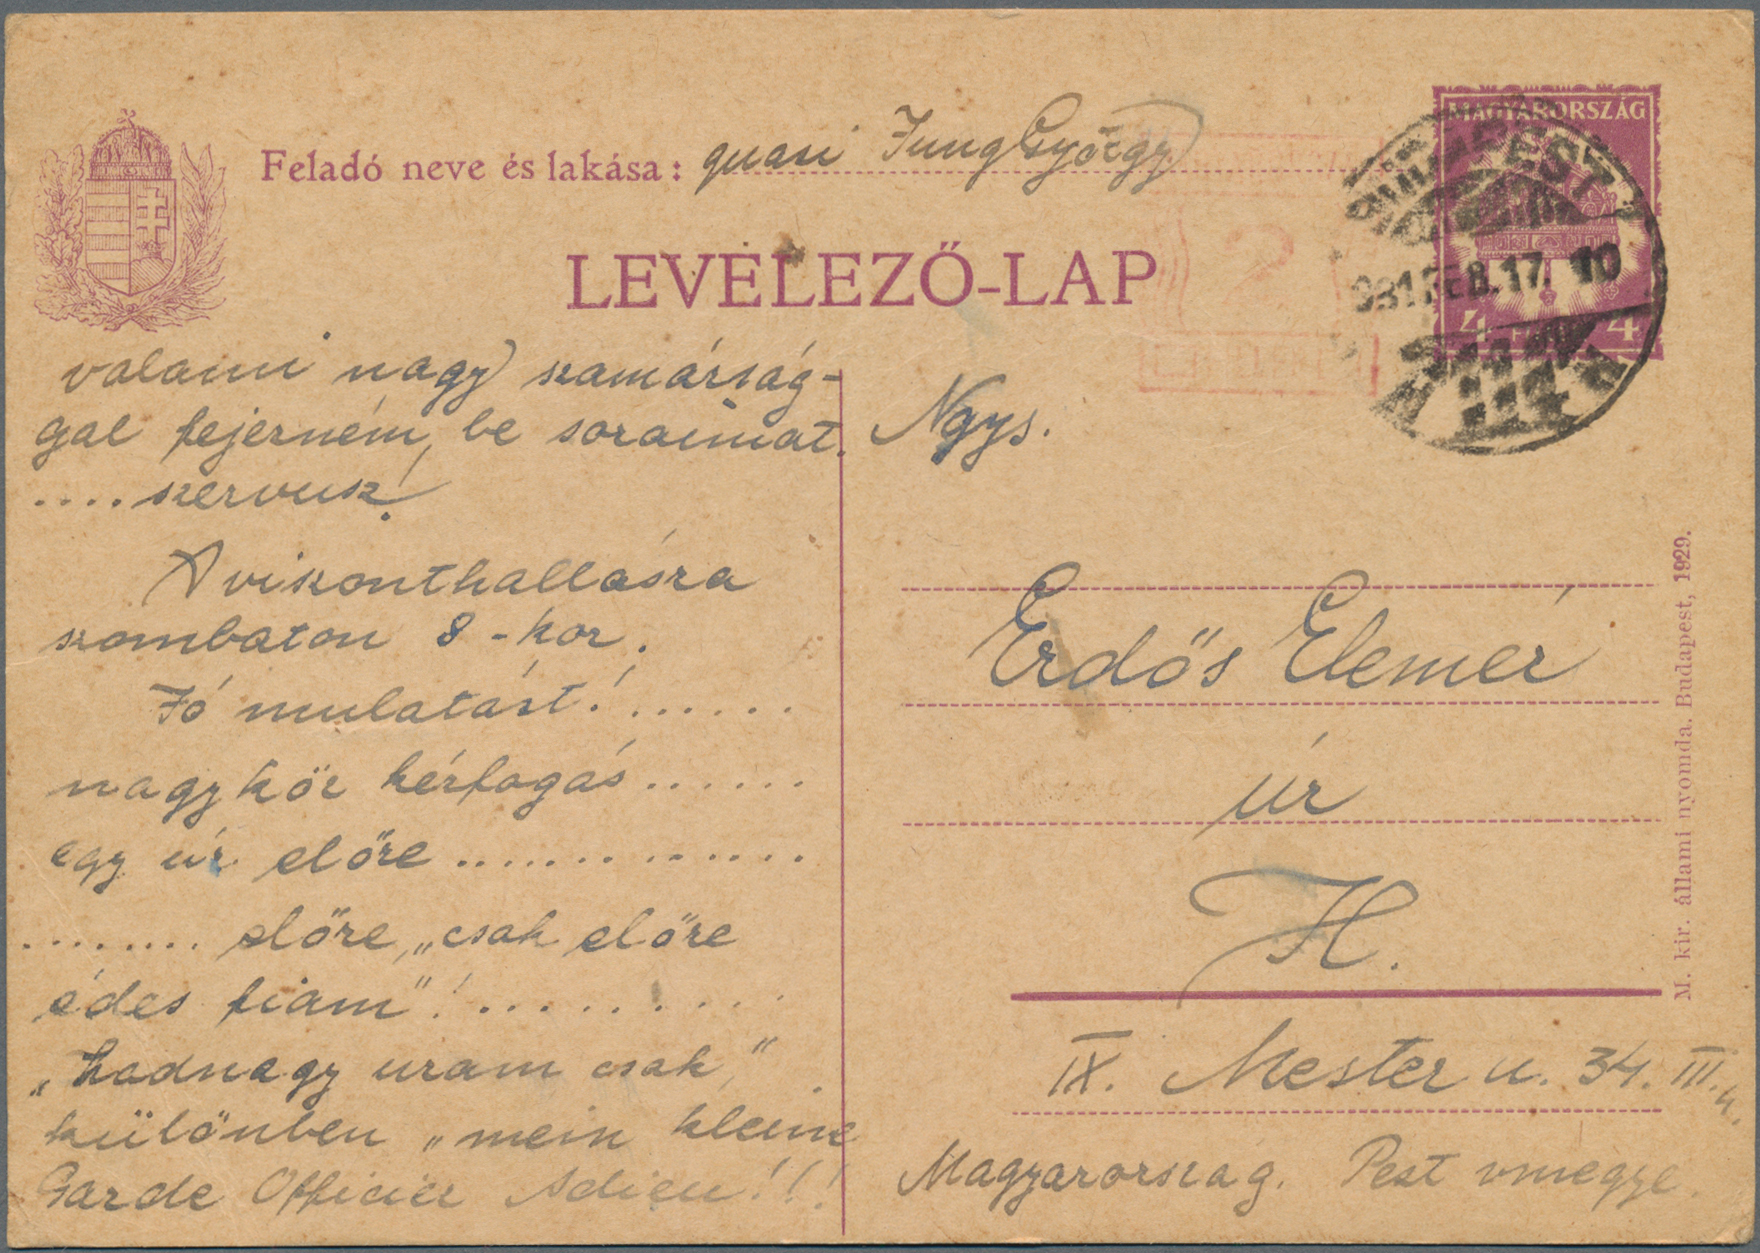 Feladó neve és lakása: quasi Jung György
LEVELEZŐ-LAP
MAGYARORSZÁG
4 4
BUDAPEST
931 FEB. 17. 10
2
valami nagy szamárság-
gal fejezném be soraimat.
....szervusz!
A viszonthallásra
szombaton 8-kor.
Jó mulatást!......
nagy kör kézfogás......
egy úr előre..............
........ előre, „csak előre
édes fiam"!..........
„hadnagy uram csak"
különben „mein kleine
Garde Officier Adieu!!!
Ngys.
Erdős Elemér
úr
H.
IX. Mester u. 34. III. 4.
Magyarország. Pest vmegye.
M. kir. állami nyomda. Budapest, 1929.